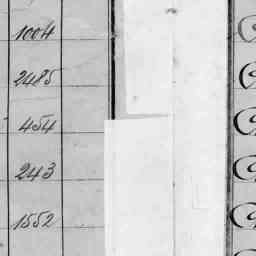 1004
2485
454
243
1552